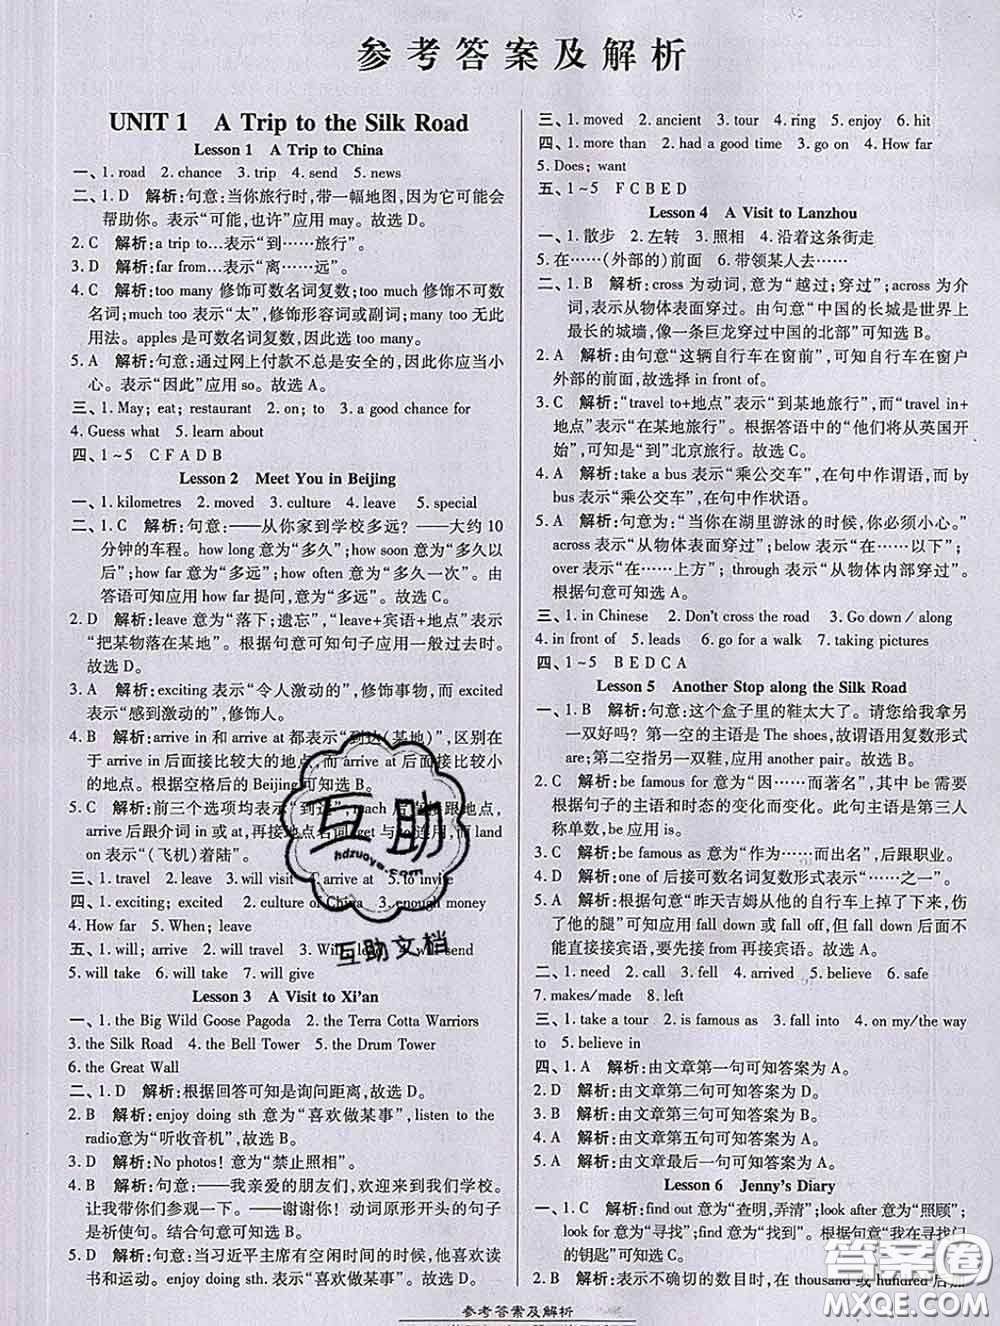 参考答案及解析
UNIT 1 A Trip to the Silk Road
Lesson 1 A Trip to China
一、1. road 2. chance 3. trip 4. send 5. news
二、1. D 解析:句意:当你旅行时,带一幅地图,因为它可能会
帮助你。表示“可能,也许”应用 may。故选 D。
2. C 解析:a trip to…表示“到……旅行”。
3. D 解析:far from…表示“离……远”。
4. C 解析:too many 修饰可数名词复数;too much 修饰不可数
名词;much too 表示“太”,修饰形容词或副词;many too 无此
用法。apples 是可数名词复数,因此选 too many。
5. A 解析:句意:通过网上付款不总是安全的,因此你应当小
心。表示“因此”应用 so。故选 A。
三、1. May; eat; restaurant 2. on; to 3. a good chance for
4. Guess what 5. learn about
四、1~5 C F A D B
Lesson 2 Meet You in Beijing
一、1. kilometres 2. moved 3. culture 4. leave 5. special
二、1. C 解析:句意:——从你家到学校多远? ——大约 10
分钟的车程。how long 意为“多久”;how soon 意为“多久以
后”;how far 意为“多远”;how often 意为“多久一次”。由
答语可知应用 how far 提问,意为“多远”。故选 C。
2. D 解析:leave 意为“落下;遗忘”,“leave+宾语+地点”表示
“把某物落在某地”。根据句意可知句子应用一般过去时。
故选 D。
3. A 解析:exciting 表示“令人激动的”,修饰事物,而 excited
表示“感到激动的”,修饰人。
4. B 解析:arrive in 和 arrive at 都表示“到达(某地)”,区别在
于 arrive in 后面接比较大的地点,而 arrive at 后面接比较小
的地点。根据空格后的 Beijing 可知选 B。
5. C 解析:前三个选项均表示“到达”,reach 后直接跟地点,
arrive 后跟介词 in 或 at,再接地点名词,get 与 to 连用,而 land
on 表示“(飞机)着陆”。
三、1. travel 2. leave 3. will visit 4. arrive at 5. to invite
四、1. exciting; excited 2. culture of China 3. enough money
4. How far 5. When; leave
五、1. will; arrive 2. will travel 3. Will; leave 4. will send
5. will take 6. will take 7. will give
Lesson 3 A Visit to Xi'an
一、1. the Big Wild Goose Pagoda 2. the Terra Cotta Warriors
3. the Silk Road 4. the Bell Tower 5. the Drum Tower
6. the Great Wall
二、1. D 解析:根据回答可知是询问距离,故选 D。
2. B 解析:enjoy doing sth 意为“喜欢做某事”,listen to the
radio意为“听收音机”,故选 B。
3. D 解析:No photos! 意为“禁止照相”。
4. B 解析:句意:——我亲爱的朋友们,欢迎来到我们学校。
让我带你们参观一下。——谢谢你! 动词原形开头的句子
是祈使句。结合句意可知选 B。
5. D 解析:句意:当习近平主席有空闲时间的时候,他喜欢读
书和运动。enjoy doing sth. 表示“喜欢做某事”。故选 D。
三、1. moved 2. ancient 3. tour 4. ring 5. enjoy 6. hit
四、1. more than 2. had a good time 3. go on 4. How far
5. Does; want
五、1~5 F C B E D
Lesson 4 A Visit to Lanzhou
一、1. 散步 2. 左转 3. 照相 4. 沿着这条街走
5. 在……(外部的)前面 6. 带领某人去……
二、1. B 解析:cross 为动词,意为“越过;穿过”;across 为介
词,表示从物体表面穿过。由句意“中国的长城是世界上
最长的城墙,像一条巨龙穿过中国的北部”可知选 B。
2. A 解析:由句意“这辆自行车在窗前”,可知自行车在窗户
外部的前面,故选择 in front of。
3. C 解析:“travel to+地点”表示“到某地旅行”,而“travel in+
地点”表示“在某地旅行”。根据答语中的“他们将从英国开
始”,可知是“到”北京旅行。故选 C。
4. A 解析:take a bus 表示“乘公交车”,在句中作谓语,而 by
bus 表示“乘公交车”,在句中作状语。
5. A 解析:句意为:“当你在湖里游泳的时候,你必须小心。”
across 表示“从物体表面穿过”;below 表示“在……以下”;
over 表示“在……上方”; through 表示“从物体内部穿过”。
根据句意可知选 A。
三、1. in Chinese 2. Don't cross the road 3. Go down / along
4. in front of 5. leads 6. go for a walk 7. taking pictures
四、1~5 B E D C A
Lesson 5 Another Stop along the Silk Road
一、1. B 解析:句意:这个盒子里的鞋太大了。请您给我拿另
一双好吗? 第一空的主语是 The shoes,故谓语用复数形式
are;第二空指另一双鞋,应用 another pair。故选 B。
2. C 解析:be famous for 意为“因……而著名”,其中 be 需要
根据句子的主语和时态的变化而变化。此句主语是第三人
称单数,be 应用 is。
3. C 解析:be famous as 意为“作为……而出名”,后跟职业。
4. D 解析:one of 后接可数名词复数形式表示“……之一”。
5. A 解析:根据句意“昨天吉姆从他的自行车上掉了下来,伤
了他的腿”可知应用 fall down 或 fall off,但 fall down 后面不
能直接接宾语,要先接 from 再接宾语。故选 A。
二、1. need 2. call 3. fell 4. arrived 5. believe 6. safe
7. makes/made 8. left
三、1. take a tour 2. is famous as 3. fall into 4. on my/the way
to 5. believe in
四、1. A 解析:由文章第一句可知答案为 A。
2. D 解析:由文章第二句可知答案为 D。
3. B 解析:由文章第三句可知答案为 B。
4. A 解析:由文章第五句可知答案为 A。
5. A 解析:由文章最后一句可知答案为 A。
Lesson 6 Jenny's Diary
一、1. C 解析:find out 意为“查明,弄清”;look after 意为“照顾”;
look for 意为“寻找”;find 意为“找到”。根据句意“我在寻找门
的钥匙”可知选 C。
2. B 解析:表示不确切的数目时,在 thousand 或 hundred 后加
参考答案及解析
互助
hdzuoye.com
互助文档
答案圈
MXQE.COM